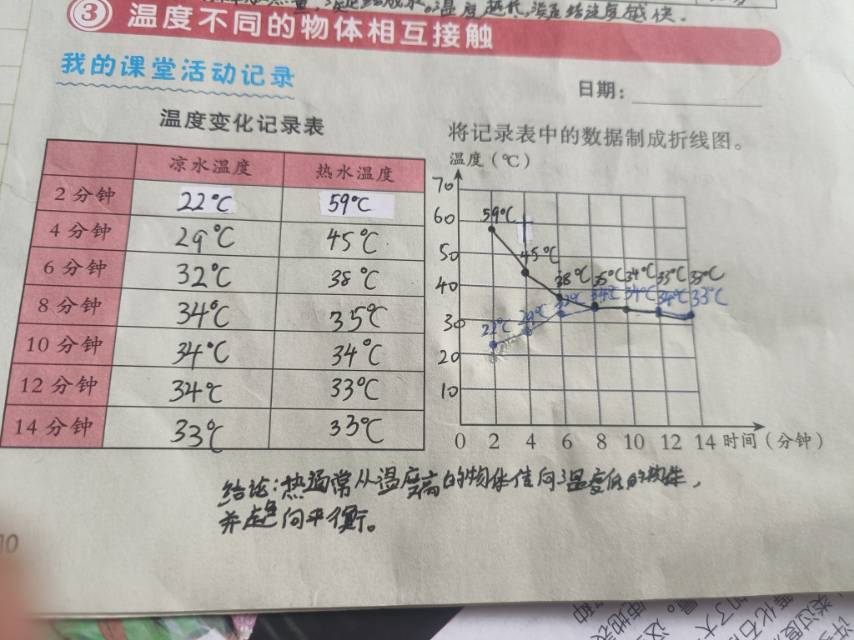 温度越代,
③ 温度不同的物体相互接触
我的课堂活动记录
日期:
温度变化记录表
将记录表中的数据制成折线图。
凉水温度 热水温度
2分钟 22°C 59°C
4分钟 29°C 45°C
6分钟 32°C 38°C
8分钟 34°C 35°C
10分钟 34°C 34°C
12分钟 34°C 33°C
14分钟 33°C 33°C
温度(℃)
70
60
50
40
30
20
10
59°C
45°C
38°C 35°C 34°C 33°C 33°C
22°C 29°C 32°C 34°C 34°C 34°C 33°C
0 2 4 6 8 10 12 14 时间(分钟)
结论:热通常从温度高的物体传向温度低的物体,
并趋向平衡。
10